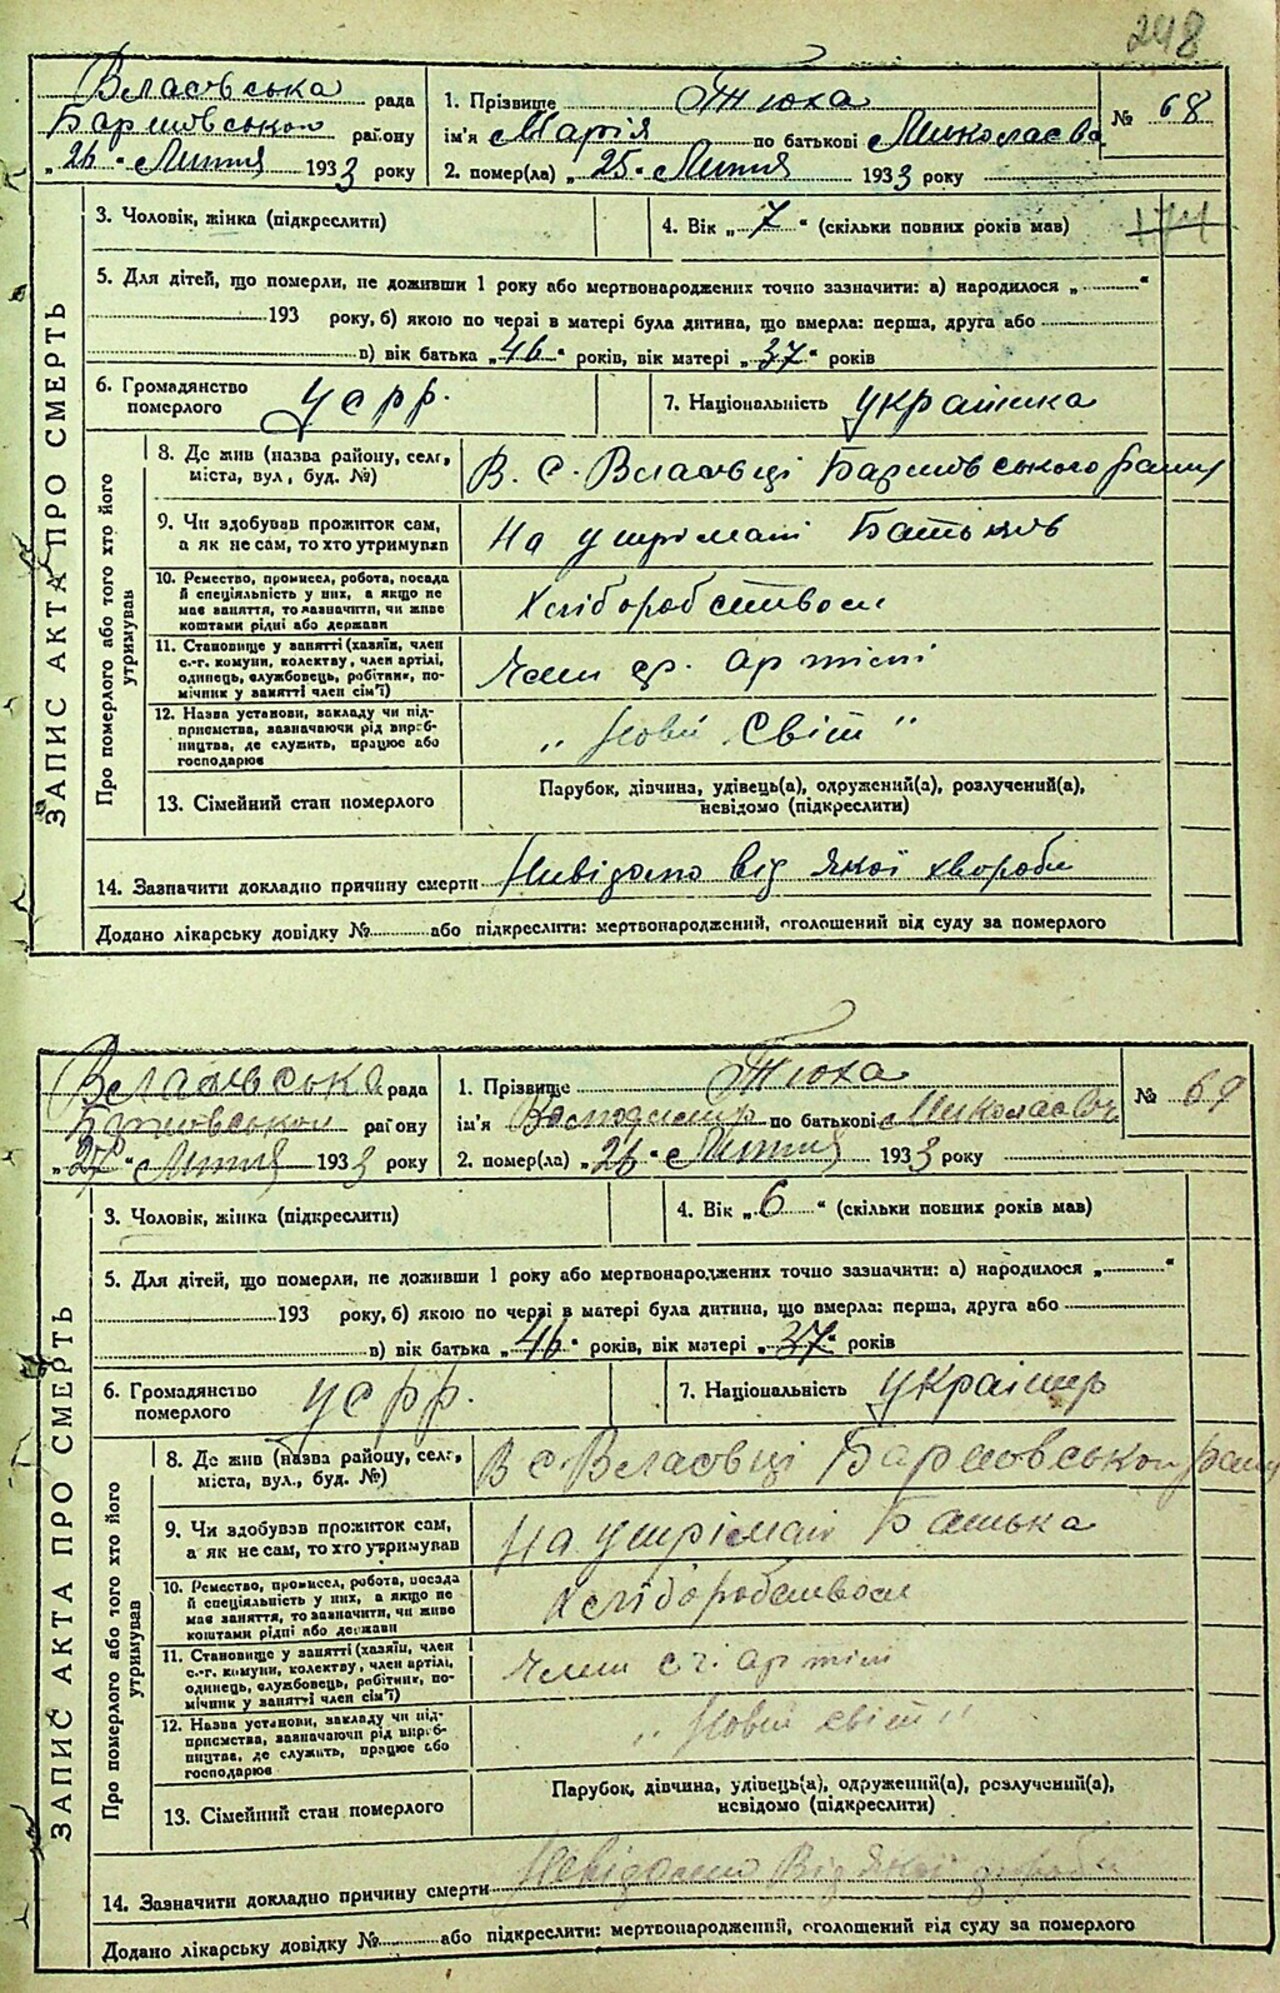 248
Власовська рада
Барновської району
„26“ Липня 1933 року
1. Прізвище Тюха
ім'я Марія по батькові Миколаєва
2. помер(ла) „25“ Липня 1933 року
№ 68
ЗАПИС АКТА ПРО СМЕРТЬ
3. Чоловік, жінка (підкреслити)
4. Вік „7“ (скільки повних років мав)
174
5. Для дітей, що померли, не доживши 1 року або мертвонароджених точно зазначити: а) народилося „ “
193 року, б) якою по черзі в матері була дитина, що вмерла: перша, друга або
в) вік батька „46“ років, вік матері „37“ років
6. Громадянство померлого УСРР.
7. Національність українка
Про померлого або того хто його утримував
8. Де жив (назва району, селг, міста, вул, буд. №)
В. С. Власовці Барновського району
9. Чи здобував прожиток сам, а як не сам, то хто утримував
На утрімані Батьків
10. Ремество, промисел, робота, посада й спеціяльність у них, а якщо не має заняття, то зазначити, чи живе коштами рідні або держави
Хліборобством
11. Становище у занятті (хазяїн, член с.-г. комуни, колектву, член артілі, одинець, службовець, робітник, помічник у занятті член сім'ї)
Член артілі
12. Назва установи, закладу чи підприємства, зазначаючи рід виробництва, де служить, працює або господарює
„Новий Світ“
13. Сімейний стан померлого
Парубок, дівчина, удівець(а), одружений(а), розлучений(а),
невідомо (підкреслити)
14. Зазначити докладно причину смерти Нивідомо від якої хвороби
Додано лікарську довідку № або підкреслити: мертвонароджений, оголошений від суду за померлого
Власовська рада
Барновської району
„27“ Липня 1933 року
1. Прізвище Тюха
ім'я Володимир по батькові Миколаєвич
2. помер(ла) „26“ Липня 1933 року
№ 69
ЗАПИС АКТА ПРО СМЕРТЬ
3. Чоловік, жінка (підкреслити)
4. Вік „6“ (скільки повних років мав)
5. Для дітей, що померли, не доживши 1 року або мертвонароджених точно зазначити: а) народилося „ “
193 року, б) якою по черзі в матері була дитина, що вмерла: перша, друга або
в) вік батька „46“ років, вік матері „37“ років
6. Громадянство померлого УСРР.
7. Національність українр
Про померлого або того хто його утримував
8. Де жив (назва району, селг, міста, вул., буд. №)
В С Власовці Барновської району
9. Чи здобував прожиток сам, а як не сам, то хто утримував
На утрімані Батька
10. Ремество, промисел, робота, посада й спеціяльність у них, а якщо не має заняття, то зазначити, чи живе коштами рідні або держави
Хліборобством
11. Становище у занятті (хазяїн, член с.-г. комуни, колектву, член артілі, одинець, службовець, робітник, помічник у занятті член сім'ї)
Член с г. артілі
12. Назва установи, закладу чи підприємства, зазначаючи рід виробництва, де служить, працює або господарює
„Новий світ“
13. Сімейний стан померлого
Парубок, дівчина, удівець(а), одружений(а), розлучений(а),
невідомо (підкреслити)
14. Зазначити докладно причину смерти Невідомо від якої хвороби
Додано лікарську довідку № або підкреслити: мертвонароджений, оголошений від суду за померлого